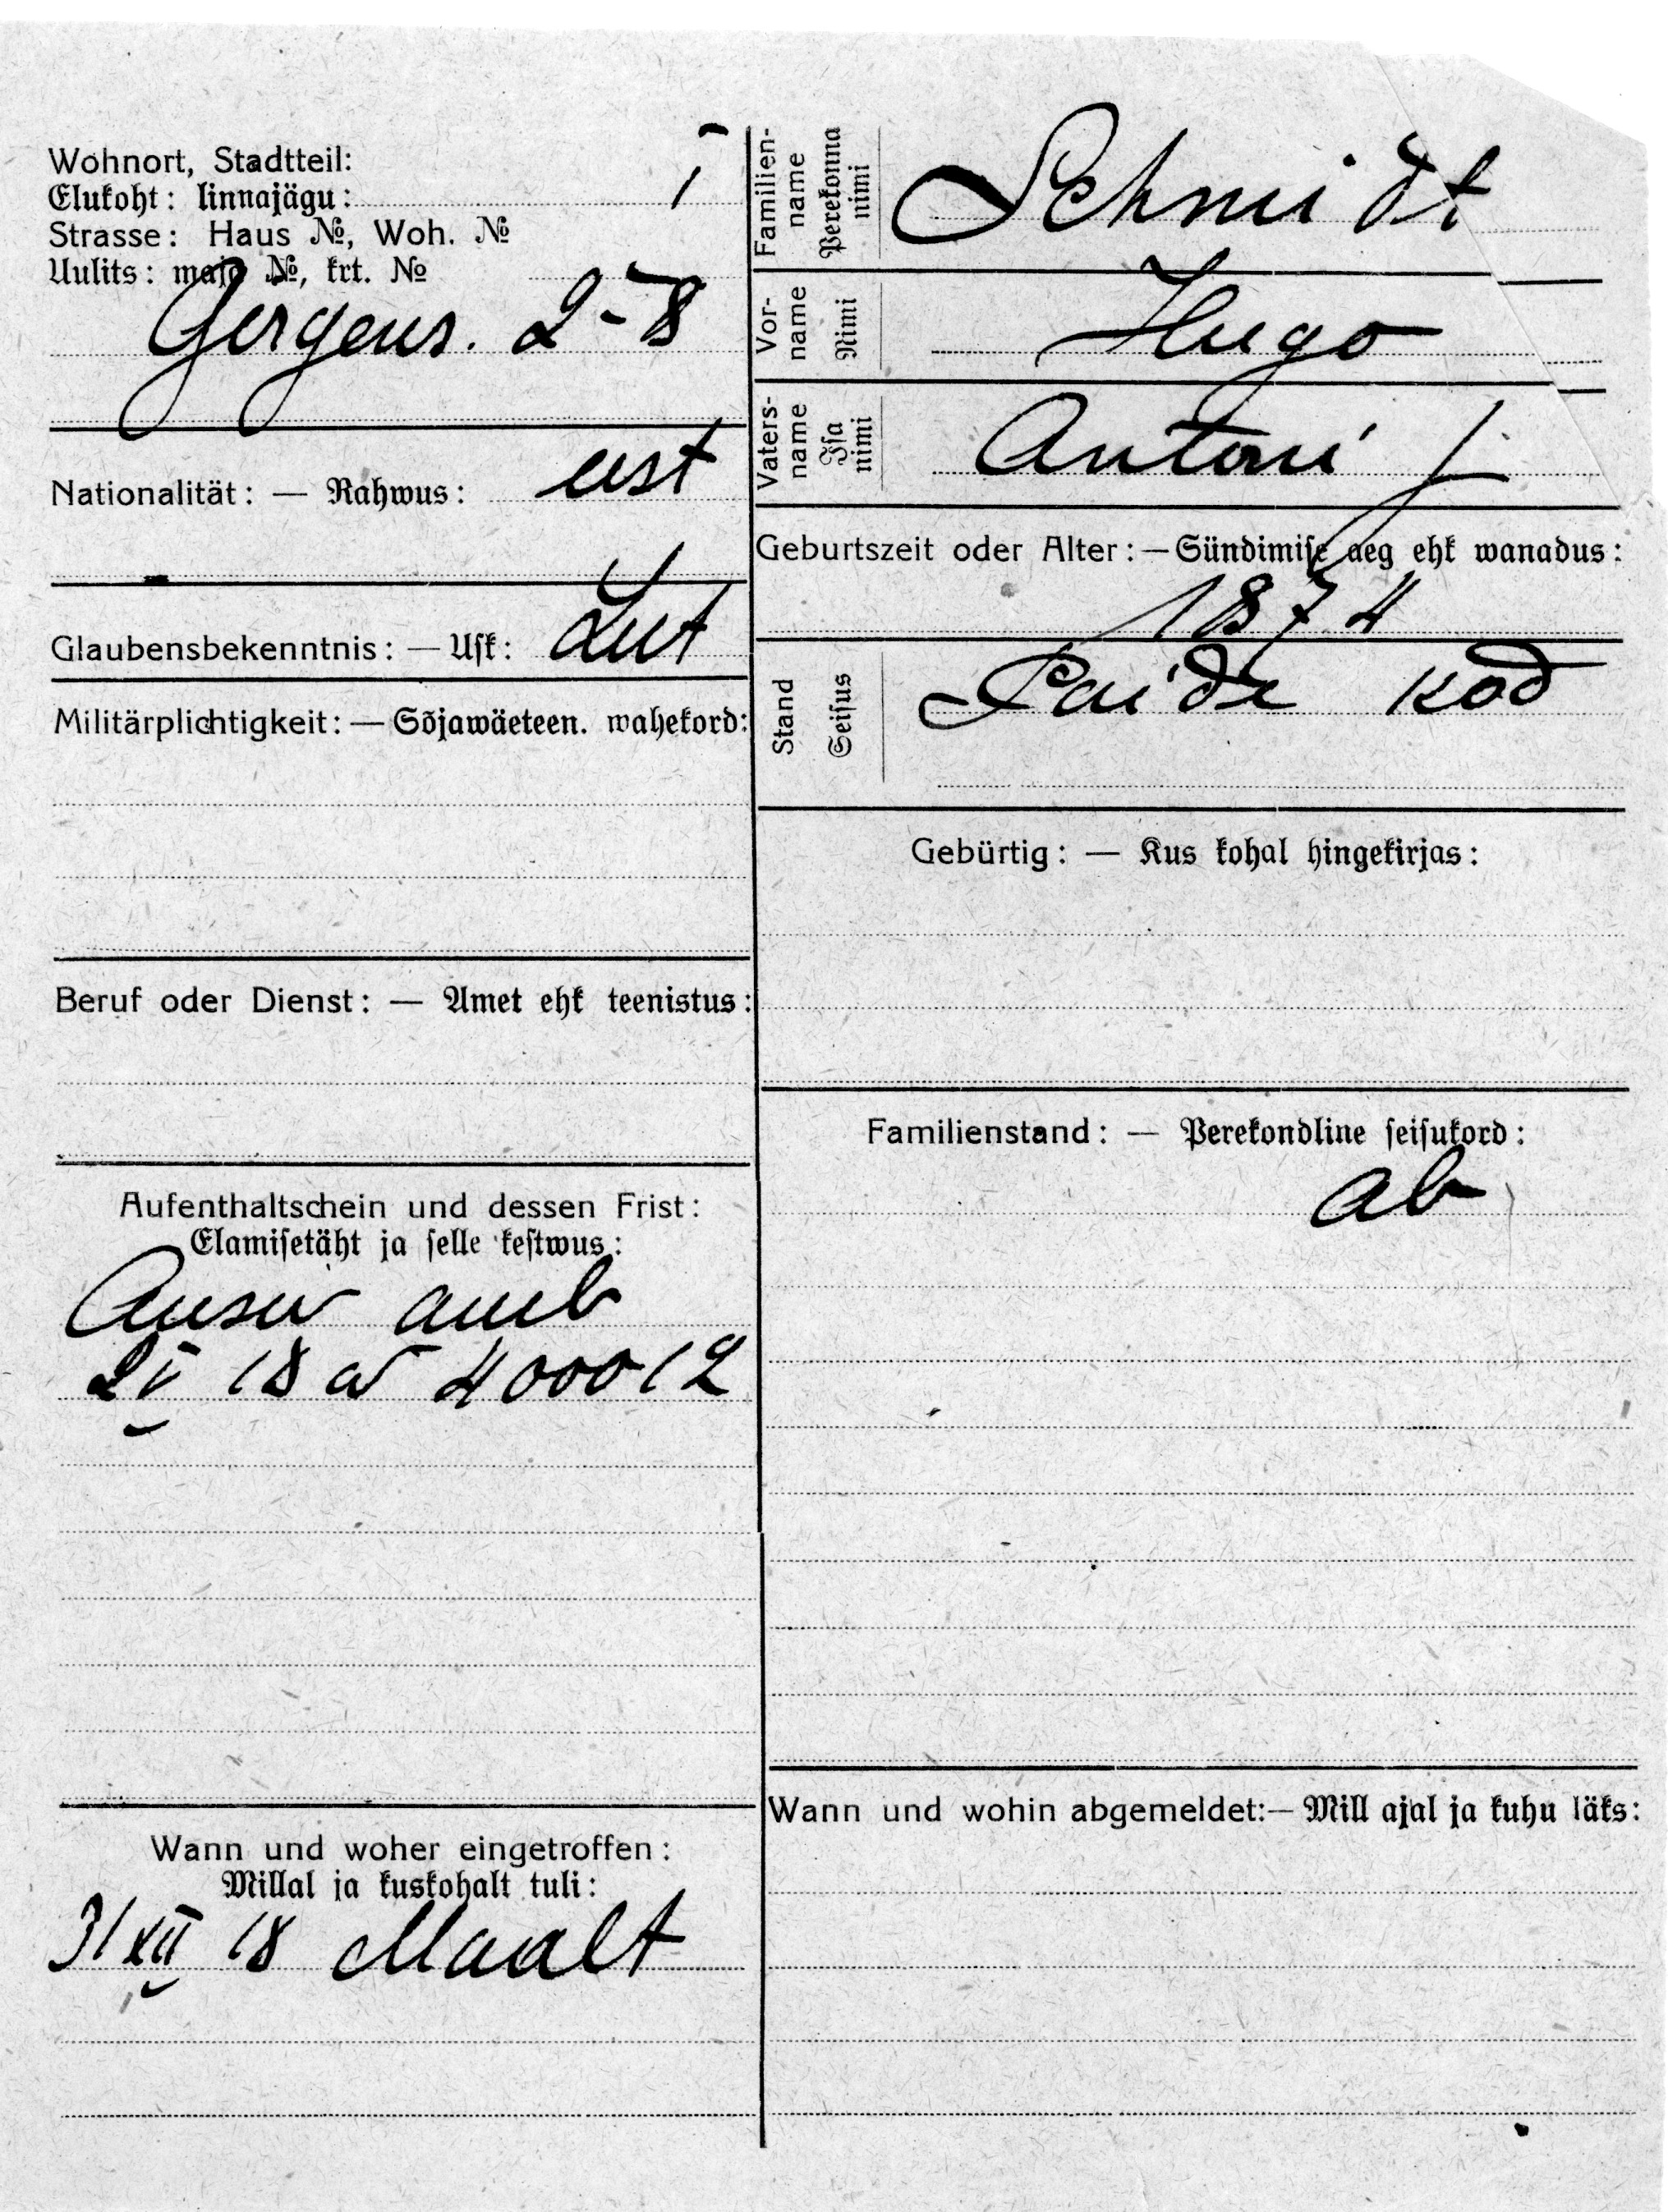 Wohnort, Stadtteil:
Elukoht: linnajägu: I
Strasse: Haus №, Woh. №
Uulits: maja №, krt. №
2-8
Nationalität: — Rahwus: eest
Glaubensbekenntnis: — Usk: Lut
Militärplichtigkeit: — Sõjawäeteen. wahekord:
Beruf oder Dienst: — Amet ehk teenistus:
Aufenthaltschein und dessen Frist:
Elamisetäht ja selle kestwus:
18 a 400012
Wann und woher eingetroffen:
Millal ja kuskohalt tuli:
31 XII 18 Maalt
Familien-
name
Perekonna
nimi
Schmidt
Vor-
name
Nimi
Hugo
Vaters-
name
Isa
nimi
Antoni
Geburtszeit oder Alter: — Sündimise aeg ehk wanadus:
1874
Stand
Seisus
Paide kod
Gebürtig: — Kus kohal hingekirjas:
Familienstand: — Perekondline seisukord:
ab
Wann und wohin abgemeldet: — Mill ajal ja kuhu läks: